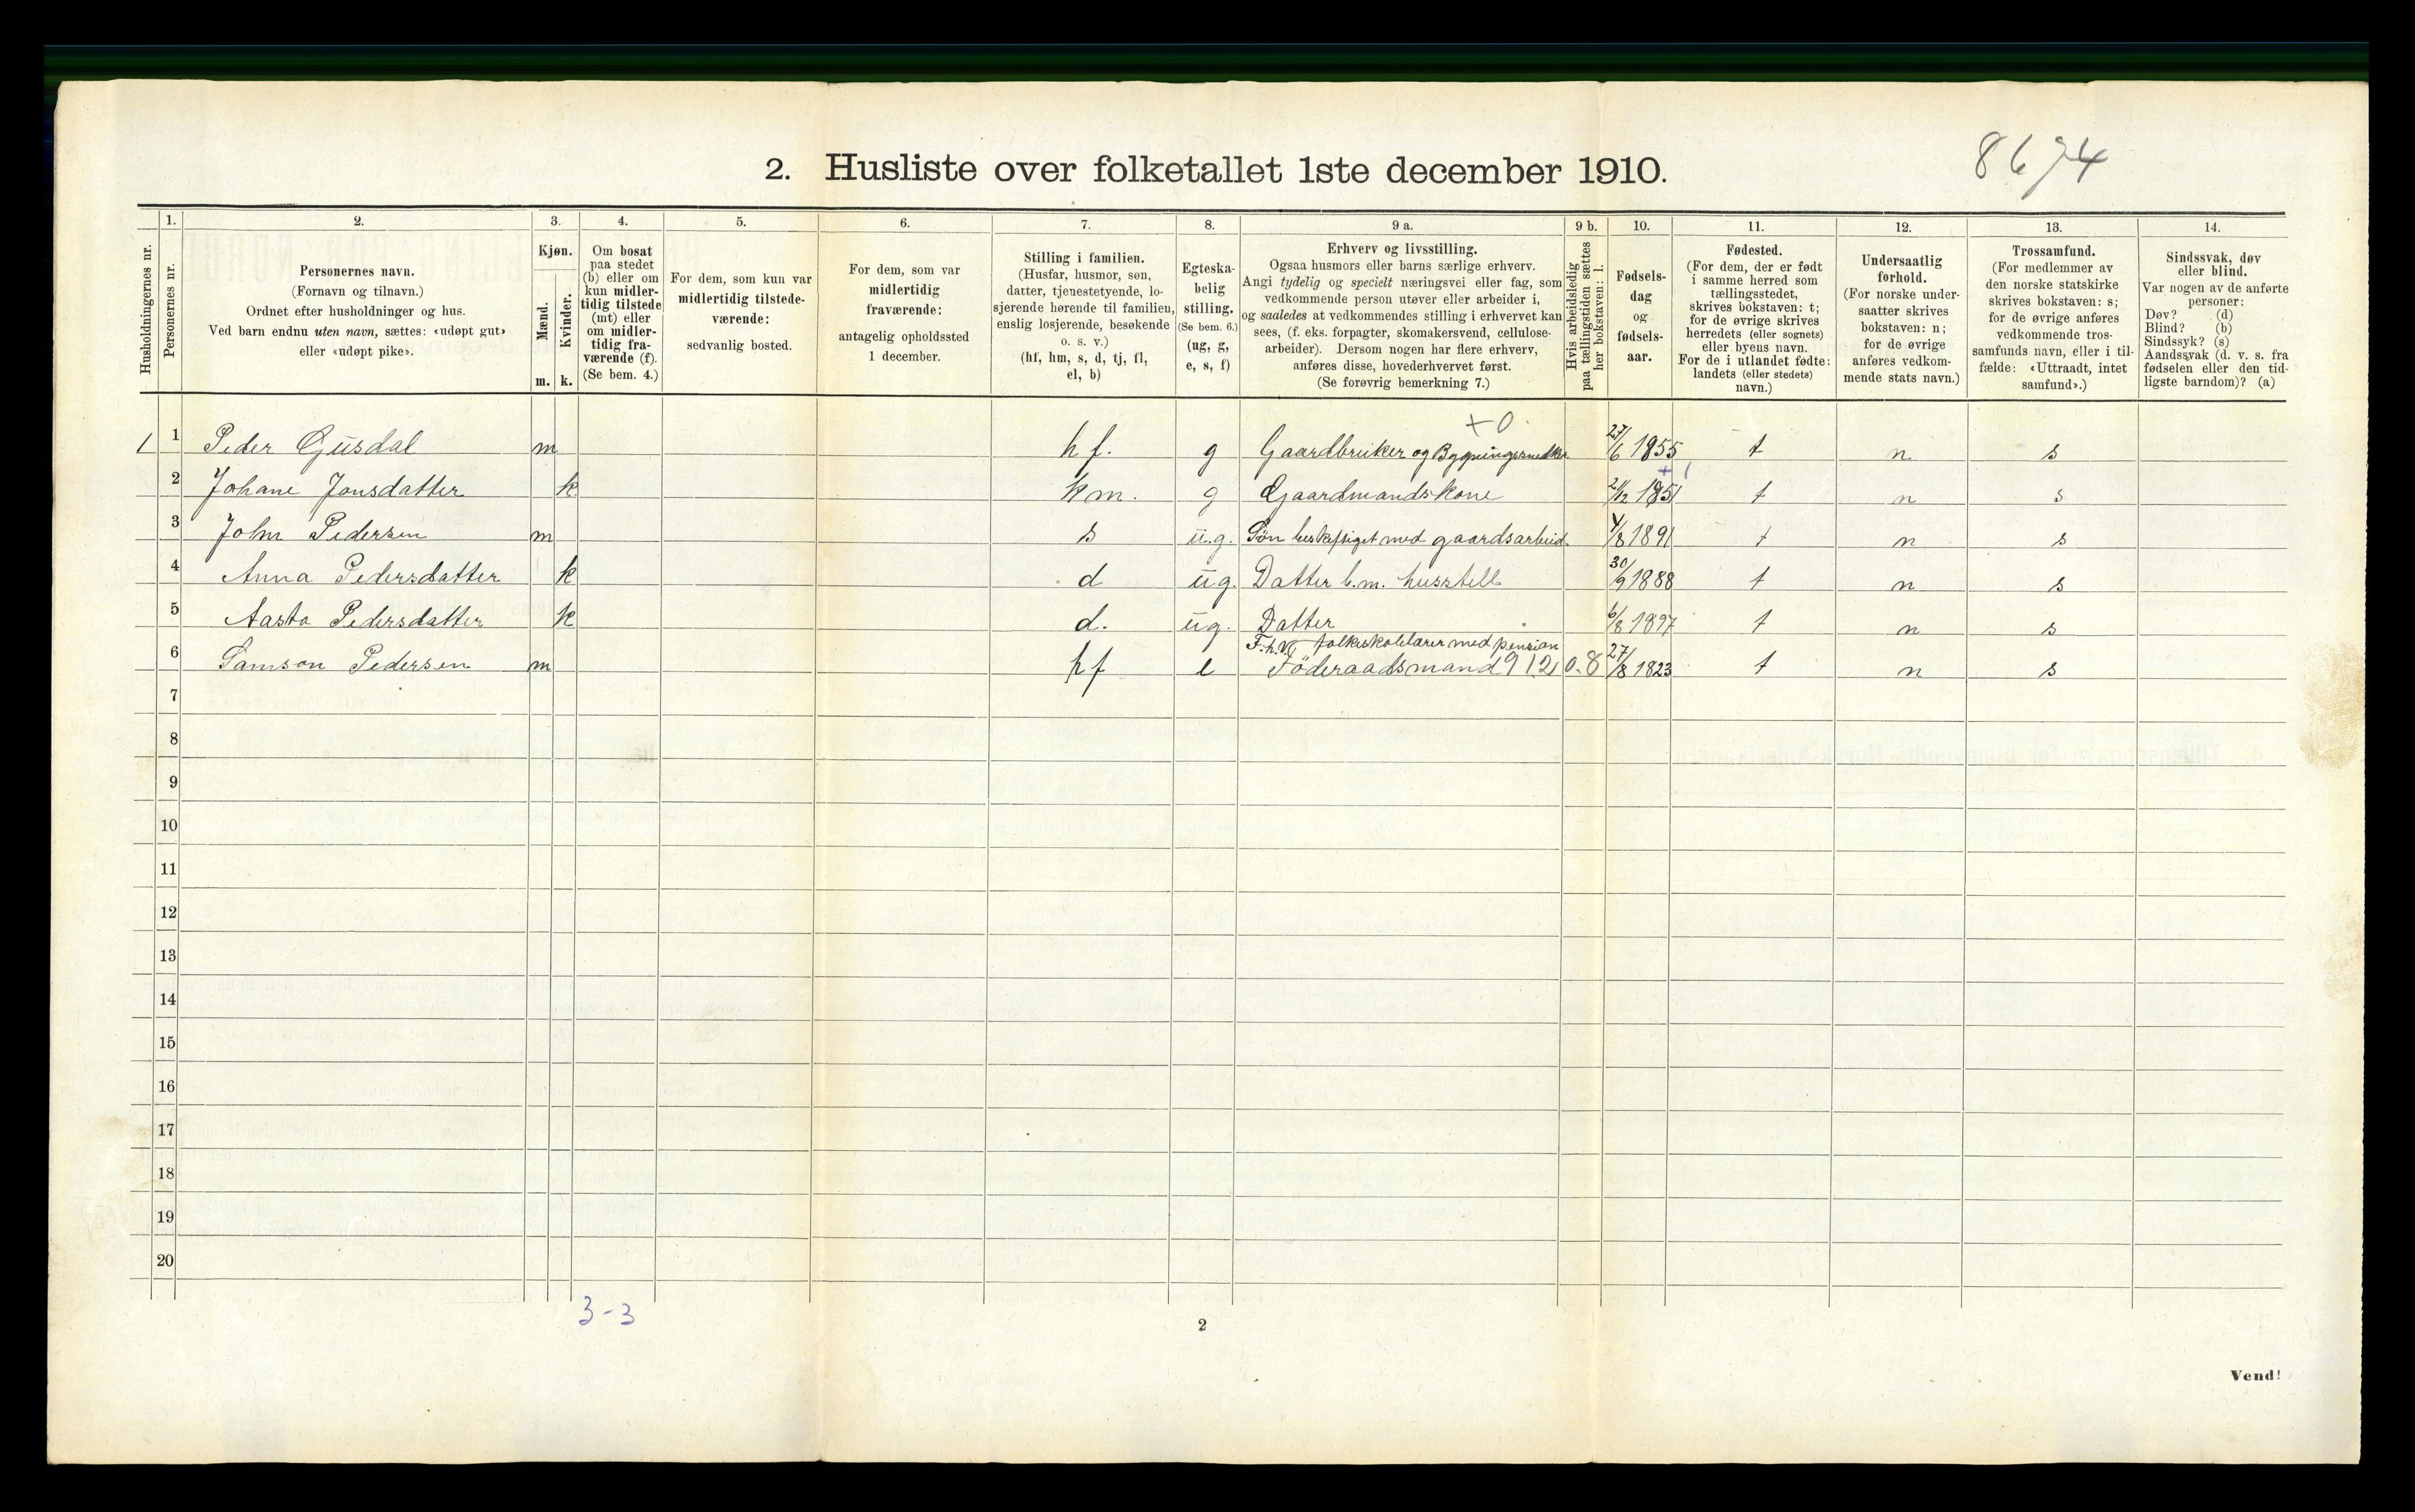 8674
2. Husliste over folketallet 1ste december 1910.
Husholdningernes nr.
1.
Personernes nr.
2.
Personernes navn.
(Fornavn og tilnavn.)
Ordnet efter husholdninger og hus.
Ved barn endnu uten navn, sættes: «udøpt gut»
eller «udøpt pike».
3.
Kjøn.
Mænd.
Kvinder.
m. k.
4.
Om bosat
paa stedet
(b) eller om
kun midler-
tidig tilstede
(mt) eller
om midler-
tidig fra-
værende (f).
(Se bem. 4.)
5.
For dem, som kun var
midlertidig tilstede-
værende:
sedvanlig bosted.
6.
For dem, som var
midlertidig
fraværende:
antagelig opholdssted
1 december.
7.
Stilling i familien.
(Husfar, husmor, søn,
datter, tjenestetyende, lo-
sjerende hørende til familien,
enslig losjerende, besøkende
o. s. v.)
(hf, hm, s, d, tj, fl,
el, b)
8.
Egteska-
belig
stilling.
(Se bem. 6.)
(ug, g,
e, s, f)
9 a.
Erhverv og livsstilling.
Ogsaa husmors eller barns særlige erhverv.
Angi tydelig og specielt næringsvei eller fag, som
vedkommende person utøver eller arbeider i,
og saaledes at vedkommendes stilling i erhvervet kan
sees, (f. eks. forpagter, skomakersvend, cellulose-
arbeider). Dersom nogen har flere erhverv,
anføres disse, hovederhvervet først.
(Se forøvrig bemerkning 7.)
9 b.
Hvis arbeidsledig
paa tællingstiden sættes
her bokstaven: l.
10.
Fødsels-
dag
og
fødsels-
aar.
11.
Fødested.
(For dem, der er født
i samme herred som
tællingsstedet,
skrives bokstaven: t;
for de øvrige skrives
herredets (eller sognets)
eller byens navn.
For de i utlandet fødte:
landets (eller stedets)
navn.)
12.
Undersaatlig
forhold.
(For norske under-
saatter skrives
bokstaven: n;
for de øvrige
anføres vedkom-
mende stats navn.)
13.
Trossamfund.
(For medlemmer av
den norske statskirke
skrives bokstaven: s;
for de øvrige anføres
vedkommende tros-
samfunds navn, eller i til-
fælde: «Uttraadt, intet
samfund».)
14.
Sindssvak, døv
eller blind.
Var nogen av de anførte
personer:
Døv? (d)
Blind? (b)
Sindssyk? (s)
Aandssvak (d. v. s. fra
fødselen eller den tid-
ligste barndom)? (a)
+0.
1 1 Peder Gusdal m hf. g Gaardbruker og Bygningssnedker 27/6 1855 t n s
2 Johane Jonsdatter k hm. g Gaardmandskone 21/12 1851 t n s
3 John Pedersen m s ug. Søn beskjæftiget med gaardsarbeid 4/8 1891 t n s
4 Anna Pedersdatter k d ug. Datter b.m. husstell 30/9 1888 t n s
5 Aasta Pedersdatter k d. ug. Datter 6/8 1897 t n s
folkeskolelærer med pension
6 Samson Pedersen m hf e Føderaadsmand 912 0.8 27/8 1823 t n s
7
8
9
10
11
12
13
14
15
16
17
18
19
20
3-3
2
Vend!